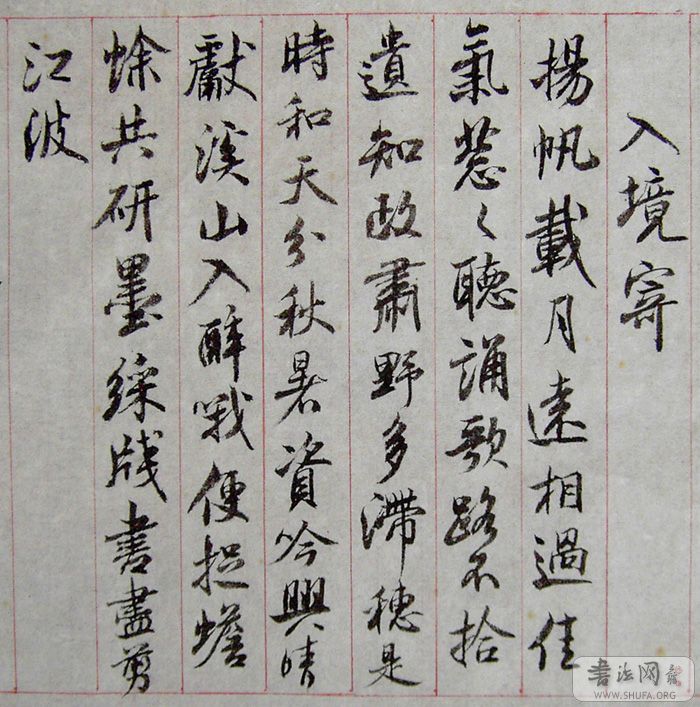 入境寄
揚帆載月遠相過佳
氣蔥〻聽誦歌路不拾
遺知政肅野多滯穗是
時和天分秋暑資吟興晴
獻溪山入醉哦便捉蟾
蜍共研墨綵牋書盡剪
江波
書法网
WWW.SHUFA.ORG